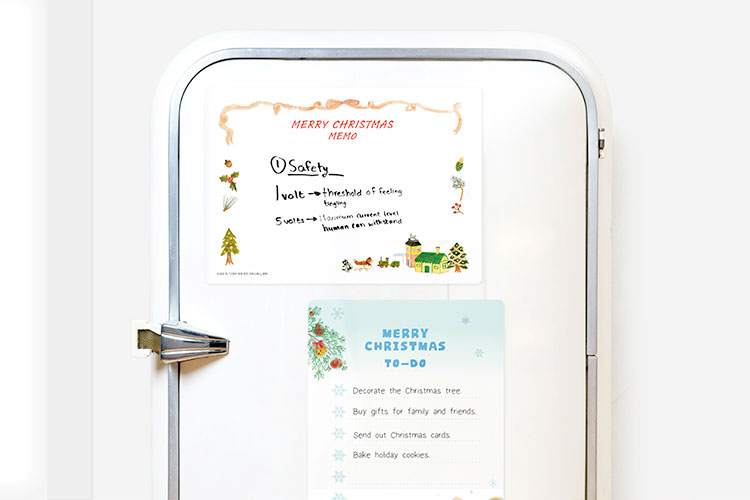 MERRY CHRISTMAS
MEMO
① Safety
1 volt → threshold of feeling
tiegling
5 volts → Maximum current level
human can withstand
MERRY
CHRISTMAS
TO-DO
Decorate the Christmas tree.
Buy gifts for family and friends.
Send out Christmas cards.
Bake holiday cookies.